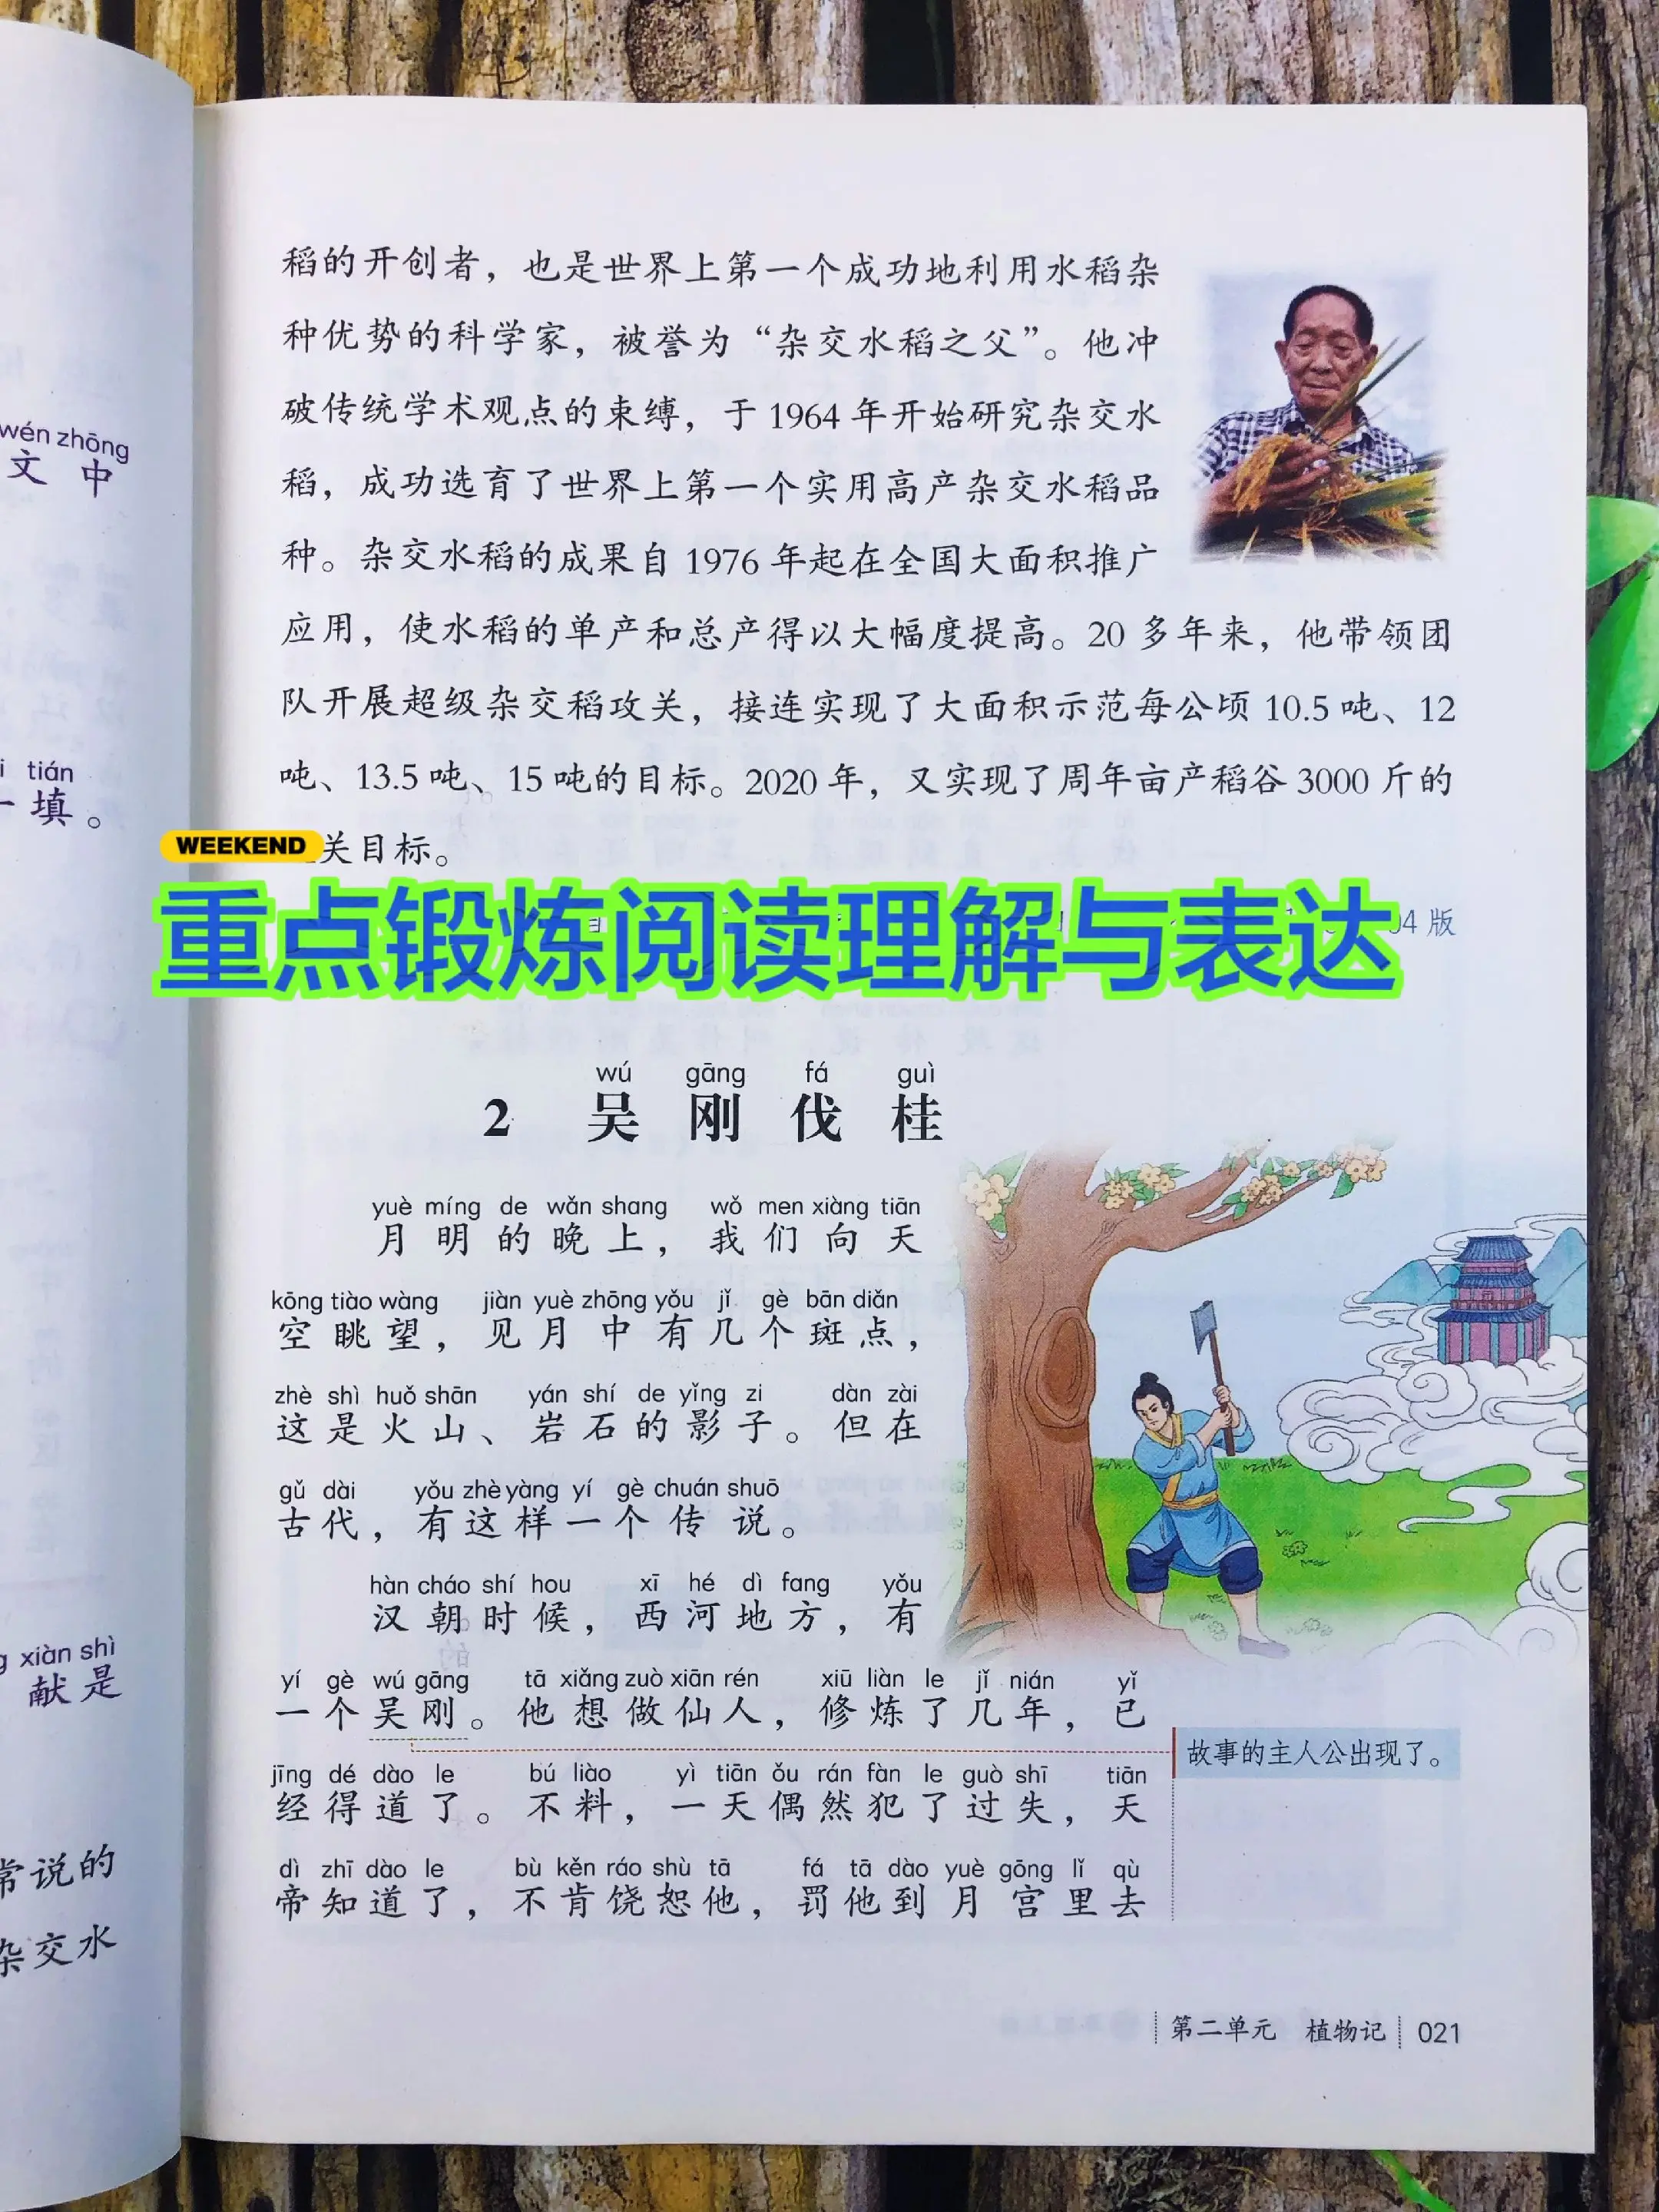 wén zhōng
文 中
tián
一 填。
xiàn shì
献 是
常说的
杂交水
稻的开创者，也是世界上第一个成功地利用水稻杂
种优势的科学家，被誉为“杂交水稻之父”。他冲
破传统学术观点的束缚，于 1964 年开始研究杂交水
稻，成功选育了世界上第一个实用高产杂交水稻品
种。杂交水稻的成果自 1976 年起在全国大面积推广
应用，使水稻的单产和总产得以大幅度提高。20 多年来，他带领团
队开展超级杂交稻攻关，接连实现了大面积示范每公顷 10.5 吨、12
吨、13.5 吨、15 吨的目标。2020 年，又实现了周年亩产稻谷 3000 斤的
关目标。
WEEKEND
重点锻炼阅读理解与表达
04 版
wú gāng fá guì
2 吴 刚 伐 桂
yuè míng de wǎn shang wǒ men xiàng tiān
月 明 的 晚 上，我 们 向 天
kōng tiào wàng jiàn yuè zhōng yǒu jǐ gè bān diǎn
空 眺 望，见 月 中 有 几 个 斑 点，
zhè shì huǒ shān yán shí de yǐng zi dàn zài
这 是 火 山、岩 石 的 影 子。但 在
gǔ dài yǒu zhè yàng yí gè chuán shuō
古 代，有 这 样 一 个 传 说。
hàn cháo shí hou xī hé dì fang yǒu
汉 朝 时 候，西 河 地 方，有
yí gè wú gāng tā xiǎng zuò xiān rén xiū liàn le jǐ nián yǐ
一 个 吴 刚。他 想 做 仙 人，修 炼 了 几 年，已
故事的主人公出现了。
jīng dé dào le bú liào yì tiān ǒu rán fàn le guò shī tiān
经 得 道 了。不 料，一 天 偶 然 犯 了 过 失，天
dì zhī dào le bù kěn ráo shù tā fá tā dào yuè gōng lǐ qù
帝 知 道 了，不 肯 饶 恕 他，罚 他 到 月 宫 里 去
第二单元 植物记 021